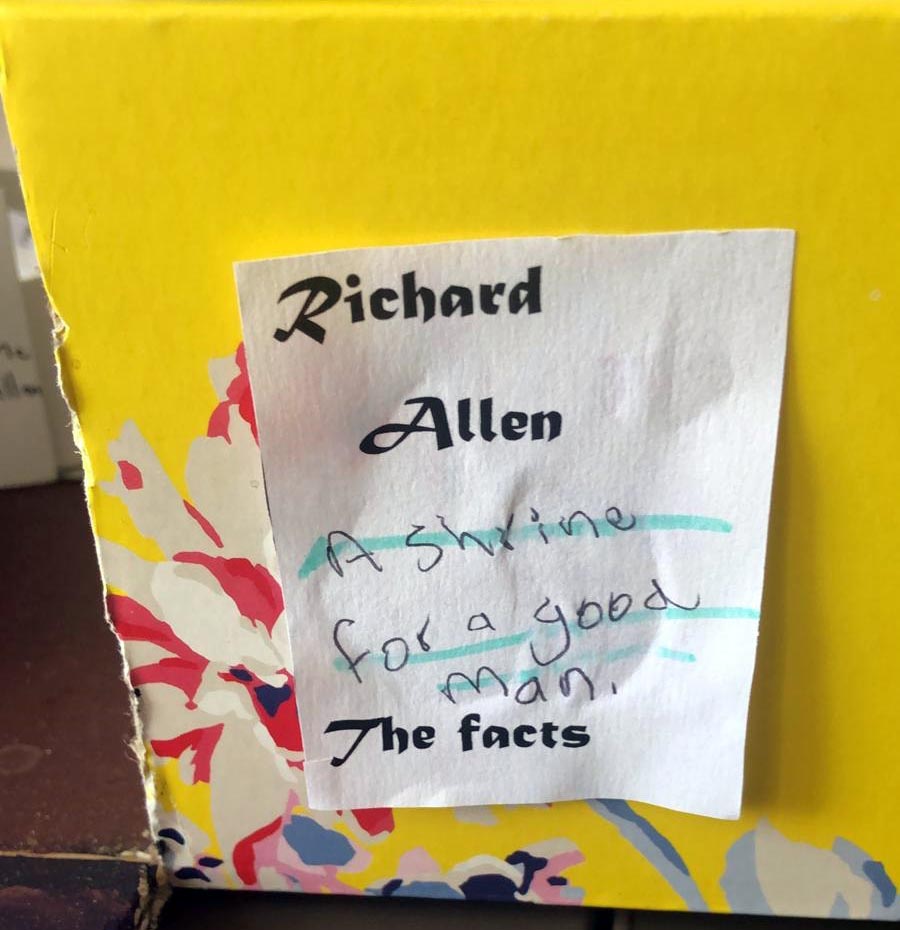 Richard
Allen
A shrine
for a good
man.
The facts